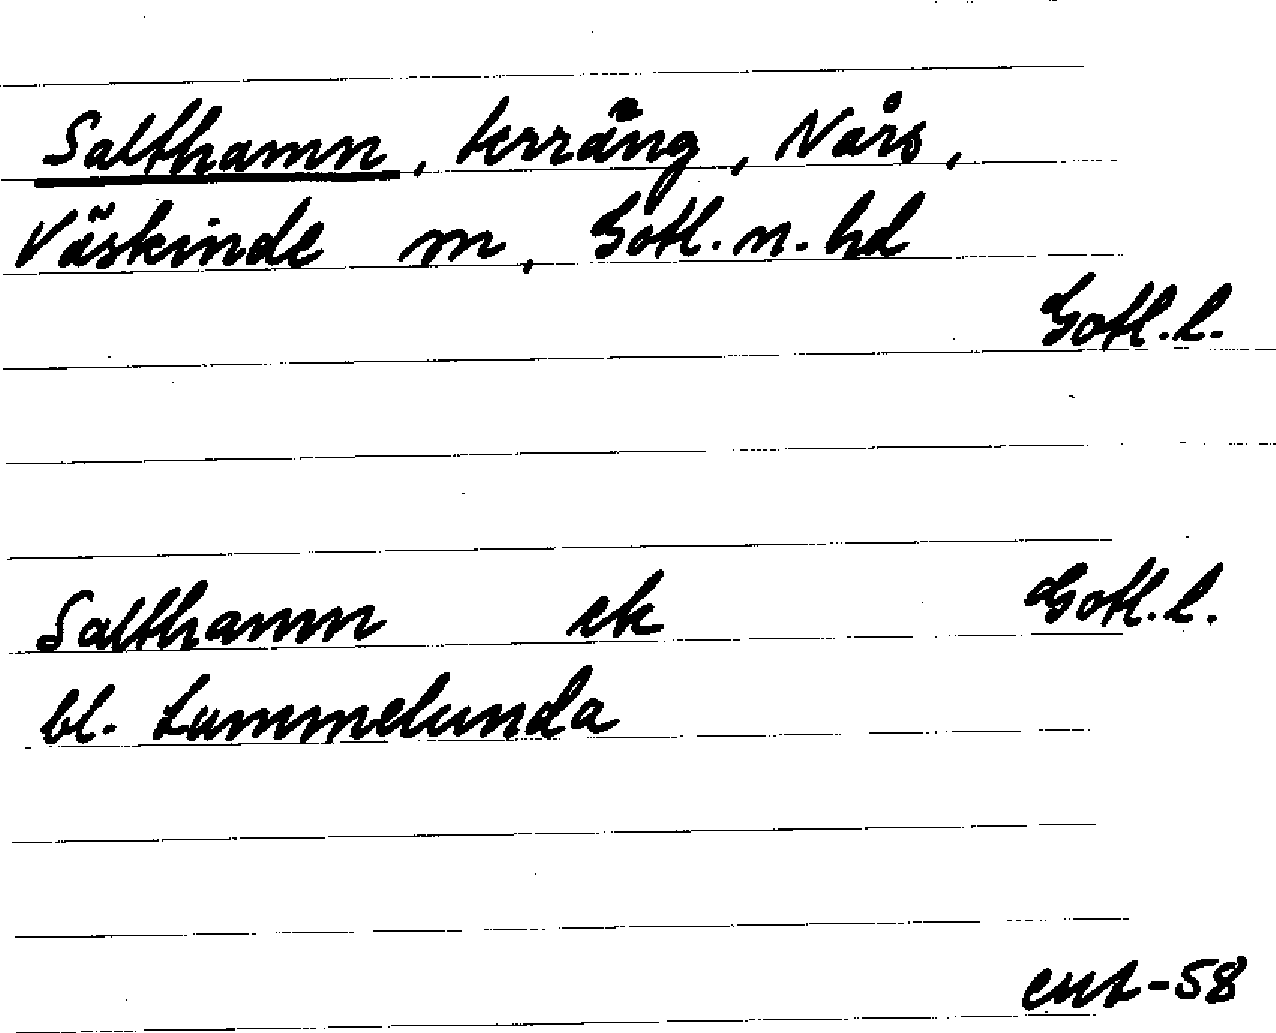 Salthamn, terräng, Nårs,
Väskinde sn, Gotl. n. hd
Gotl. l.
Salthamn ek Gotl. l.
bl. Lummelunda
-58